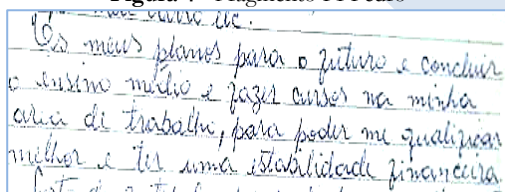 Os meus planos para o futuro e concluir
o ensino médio e fazer cursos na minha
aria de trabalho, para poder me qualificar
melhor e ter uma istabilidade financeira.